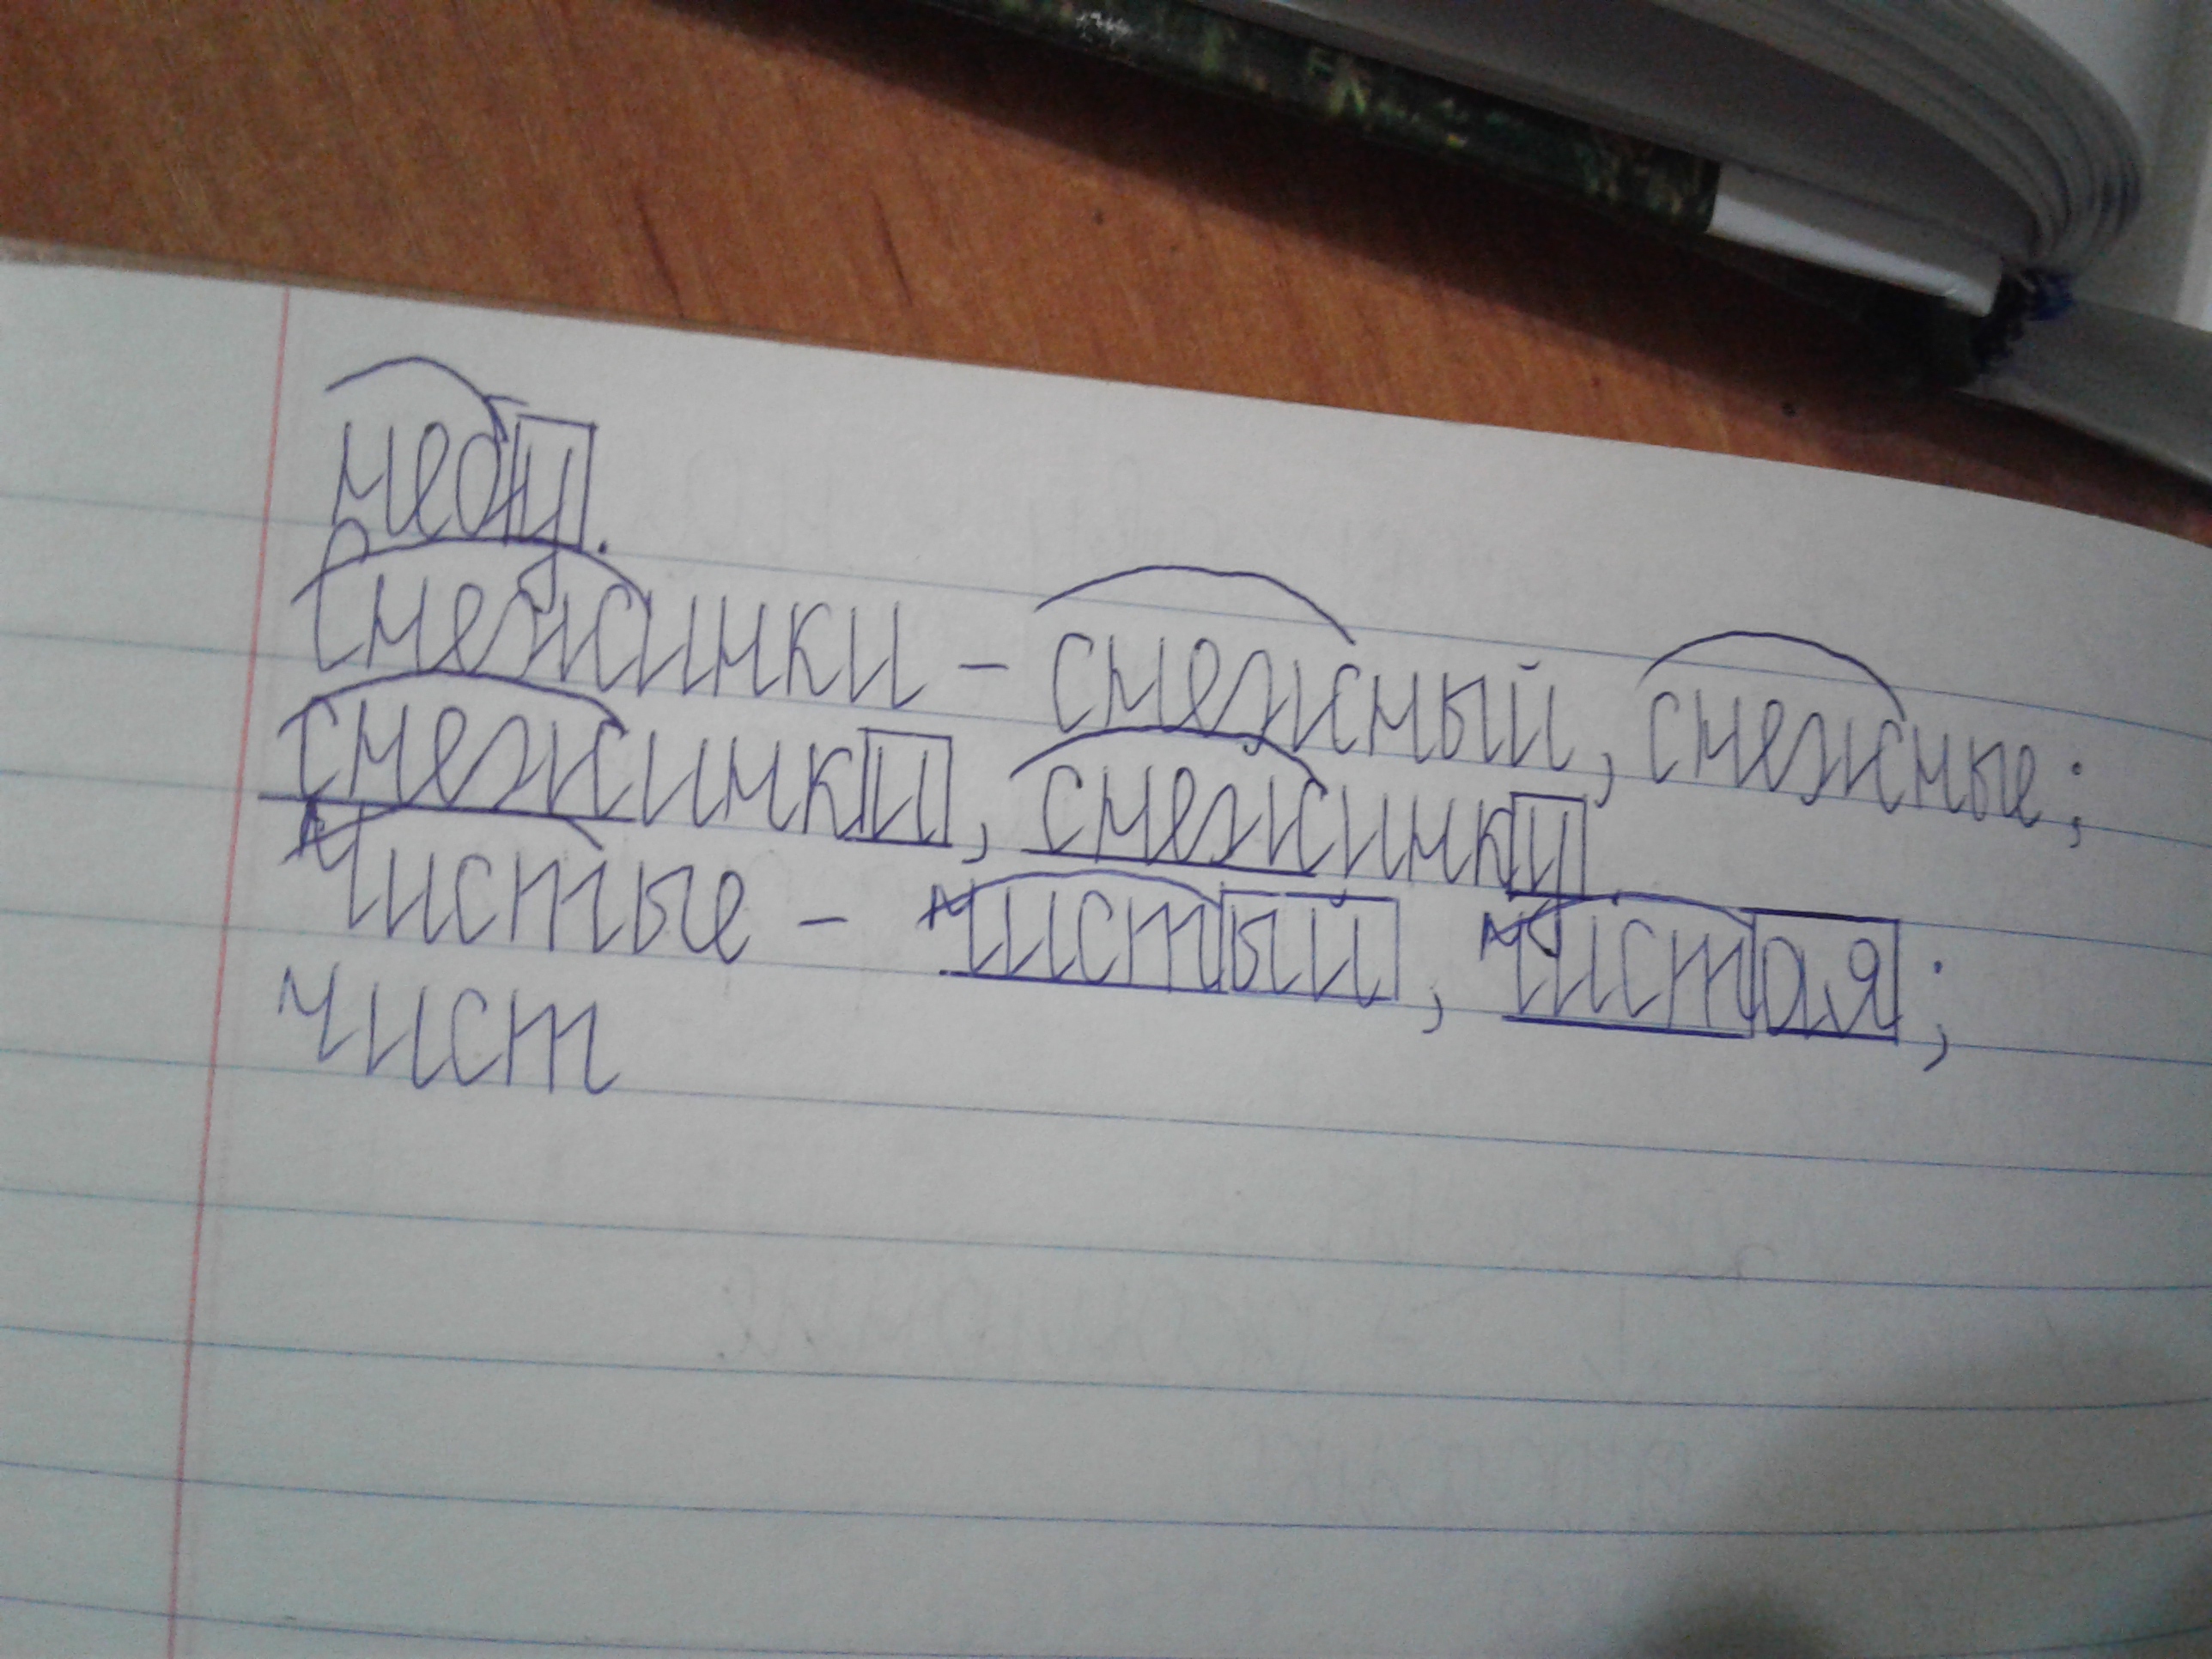 меду.
Снежинки – снежный, снежные;
снежинки, снежинку.
Чистые – чистый, чистая;
чист